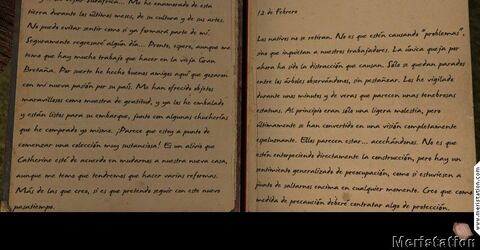 tierra durante los últimos meses, de su cultura y de sus artes.
No puedo evitar sentir como si ya formara parte de mí.
Seguramente regresaré algún día... Pronto, espero, aunque me
temo que hay mucho trabajo que hacer en la vieja Gran
Bretaña. Por suerte he hecho buenos amigos aquí que gozaron
con mi nueva pasión por su país. Me han ofrecido objetos
maravillosos como muestra de gratitud, y ya los he embalado
y están listos para su embarque, junto con algunas chucherías
que he comprado yo mismo. ¡Parece que estoy a punto de
comenzar una colección muy sustanciosa! Es un alivio que
Catherine esté de acuerdo en mudarnos a nuestra nueva casa,
aunque me temo que tendremos que hacer varias reformas.
Más de las que creo, si es que pretendo seguir con este nuevo
pasatiempo.
12 de Febrero
Los nativos no se retiran. No es que estén causando "problemas",
sino que inquietan a nuestros trabajadores. La única queja por
ahora ha sido la distracción que causan. Sólo se quedan parados
entre los árboles observándonos, sin pestañear. Les he vigilado
durante unos minutos y de veras que parecen unas tenebrosas
estatuas. Al principio eran sólo una ligera molestia, pero
últimamente se han convertido en una visión completamente
espeluznante. Ellos parecen estar... acechándonos. No es que
estén entorpeciendo directamente la construcción, pero hay un
sentimiento generalizado de preocupación, como si estuviesen a
punto de saltarnos encima en cualquier momento. Creo que como
medida de precaución deberé contratar algo de protección.
Meristation
www.meristation.com